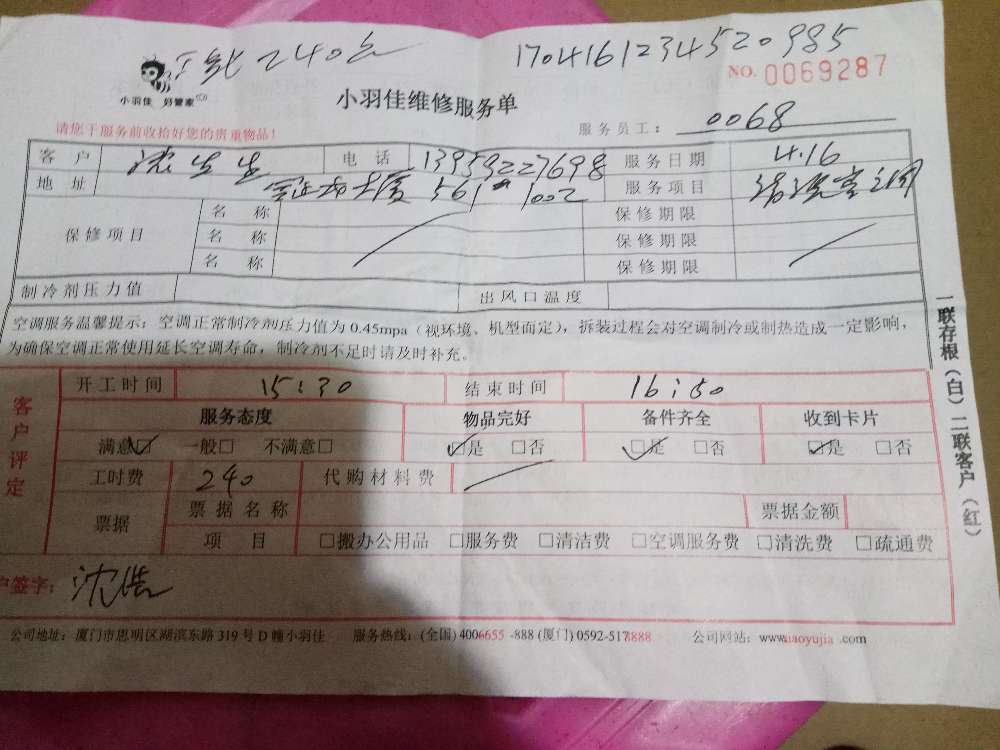 240元
1704161234520985
NO. 0069287
小羽佳 好管家
小羽佳维修服务单
请您于服务前收拾好您的贵重物品!
服务员工: 0068
客户 沈先生 电话 13959227698 服务日期 4.16
地址 大厦 561# 1002 服务项目 清洗空调
保修项目 名称 保修期限
名称 保修期限
名称 保修期限
制冷剂压力值 出风口温度
空调服务温馨提示:空调正常制冷剂压力值为0.45mpa(视环境、机型而定),拆装过程会对空调制冷或制热造成一定影响,
为确保空调正常使用延长空调寿命,制冷剂不足时请及时补充。
客户评定
开工时间 15:30 结束时间 16:50
服务态度 物品完好 备件齐全 收到卡片
满意☑ 一般□ 不满意□ ☑是 □否 ☑是 □否 ☑是 □否
工时费 240 代购材料费
票据 票据名称 票据金额
项目 □搬办公用品 □服务费 □清洁费 □空调服务费 □清洗费 □疏通费
户签字: 沈浩
公司地址:厦门市思明区湖滨东路319号D幢小羽佳 服务热线:(全国)4006655-888(厦门)0592-5178888 公司网站:www.uaoyujia.com
一联存根(白)二联客户(红)